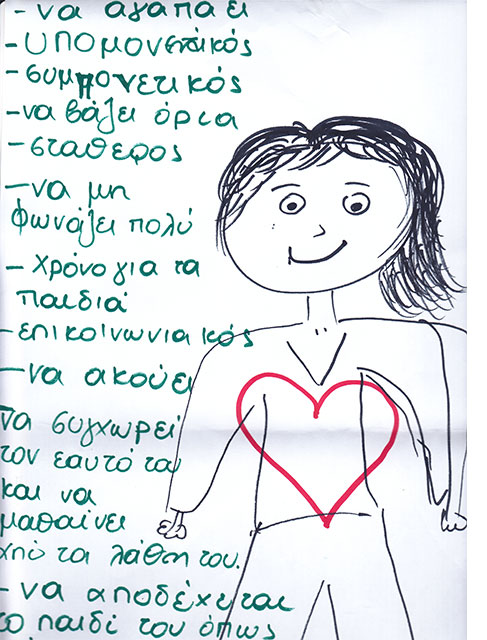 - να αγαπάει
- υπομονετικός
- συμπονετικός
- να βάζει όρια
- σταθερός
- να μη
φωνάζει πολύ
- χρόνο για τα
παιδιά
- επικοινωνιακός
- να ακούει
να συγχωρεί
τον εαυτό του
και να
μαθαίνει
από τα λάθη του.
- να αποδέχεται
το παιδί του όπως